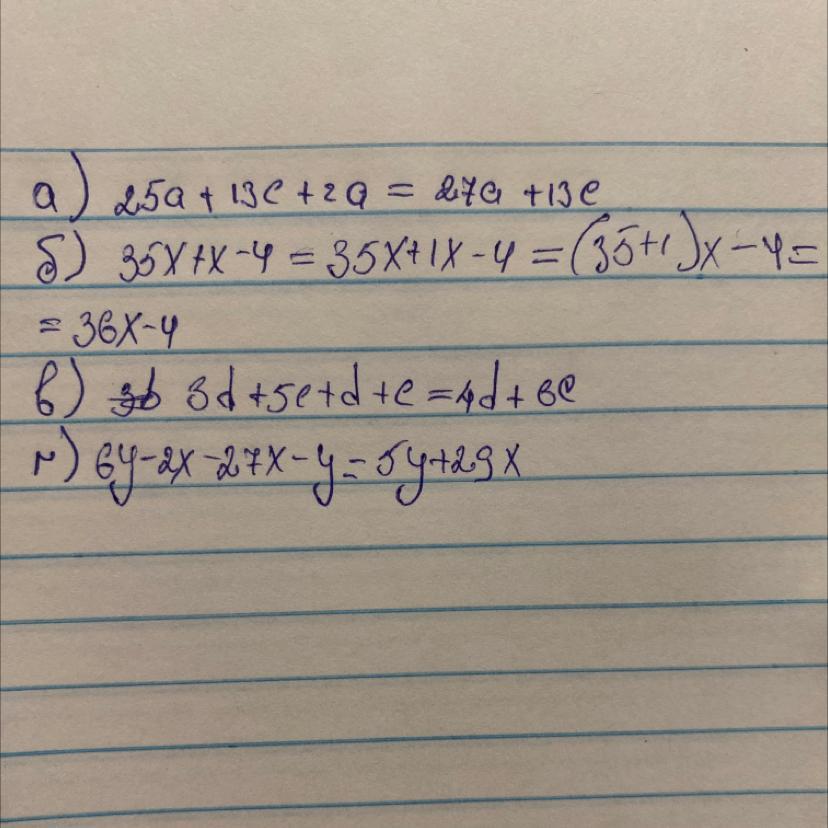 а) 25a + 13c + 2a = 27a + 13c
б) 35x+x-4 = 35x+1x-4 = (35+1)x-4=
= 36x-4
в) 3d+5c+d+c=4d+6c
г) 6y-2x-27x-y=5y+29x